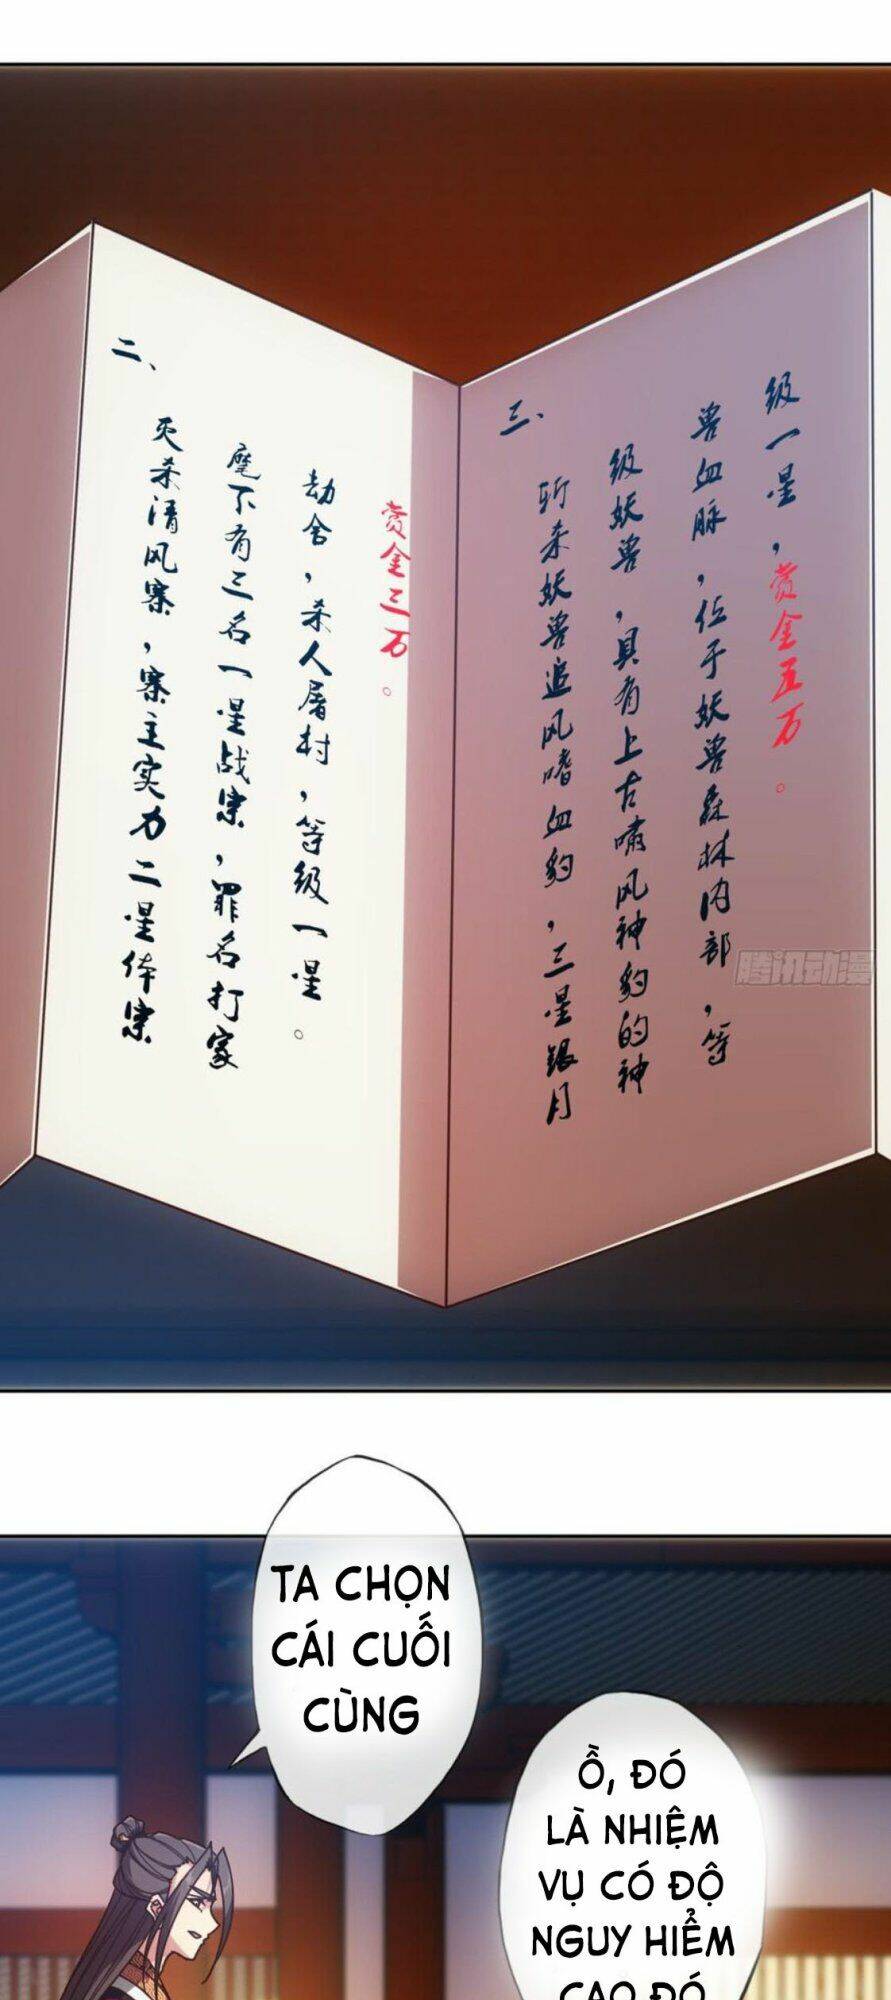 二、
灭杀清风寨，寨主实力二星体宗
麾下有三名一星战宗，罪名打家
劫舍，杀人屠村，等级一星。
赏金三万。
三、
斩杀妖兽追风嗜血豹，三星银月
级妖兽，具有上古啸风神豹的神
兽血脉，位于妖兽森林内部，等
级一星，赏金五万。
腾讯动漫
TA CHỌN
CÁI CUỐI
CÙNG
Ồ, ĐÓ
LÀ NHIỆM
VỤ CÓ ĐỘ
NGUY HIỂM
CAO ĐÓ